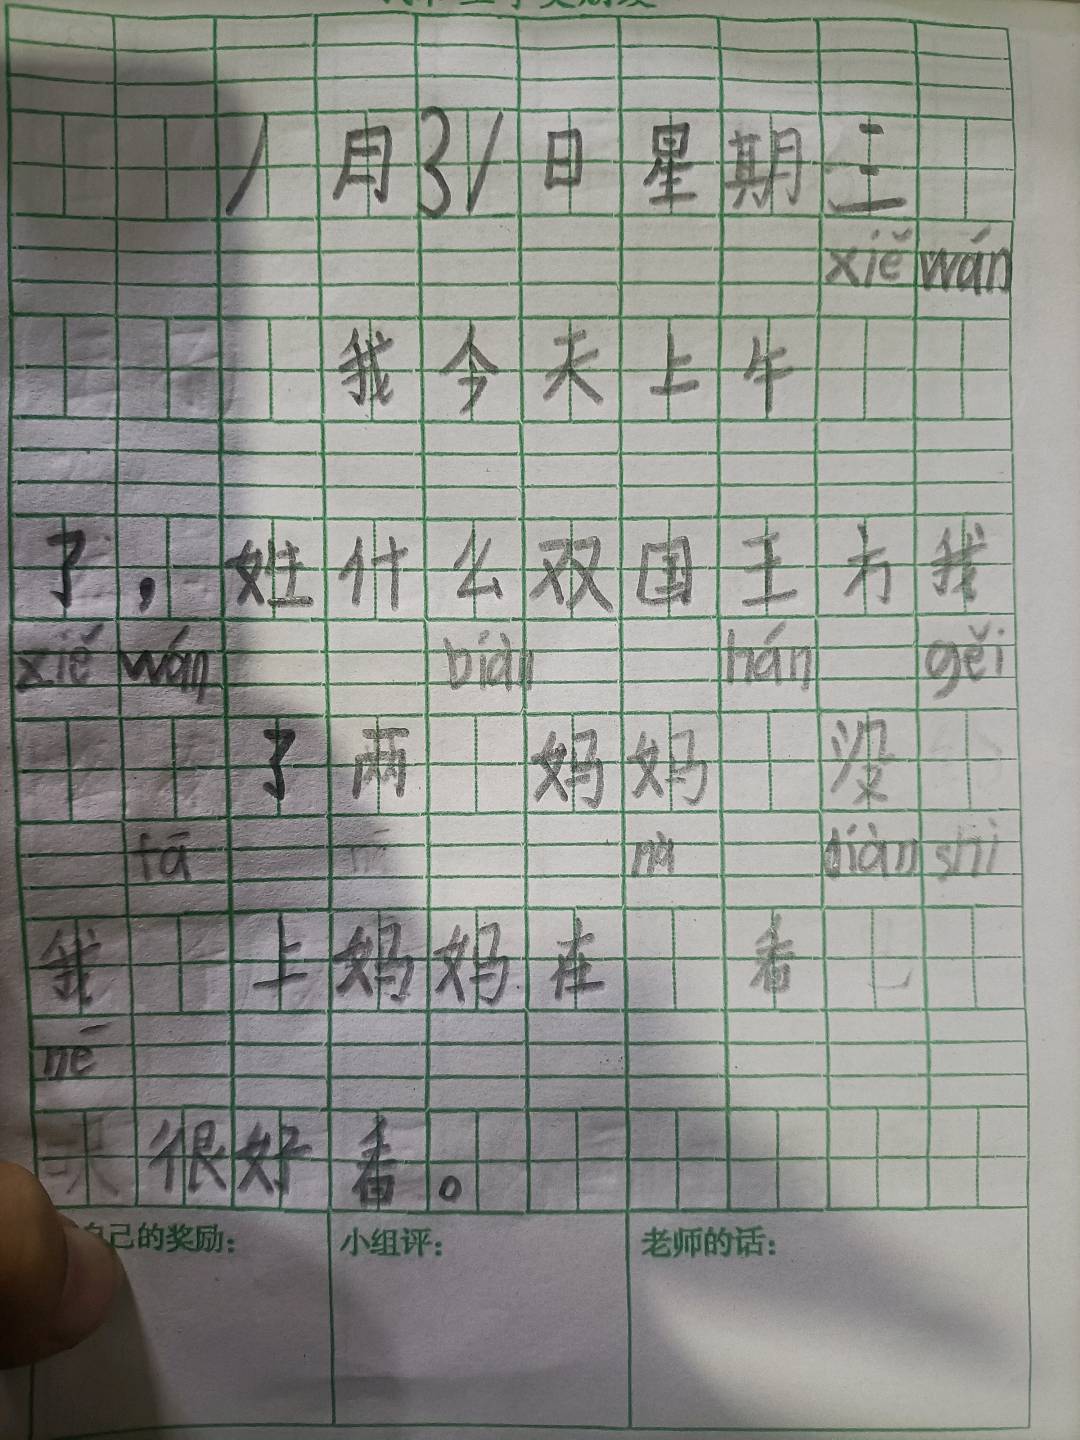 1月31日星期三
xiě wán
我今天上午
了，姓什么双国王方我
xiě wán bián hán gěi
了两 妈妈 没
fā nà diàn shì
我 上妈妈在 看
nē
很好看。
自己的奖励： 小组评： 老师的话：